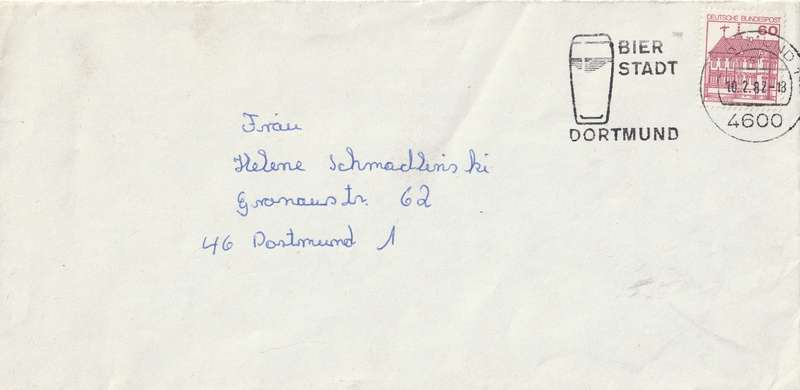 BIER
STADT
DORTMUND
DEUTSCHE BUNDESPOST
60
10.2.82-18
4600
Frau
Helene Schmadlinski
Gronaustr. 62
46 Dortmund 1